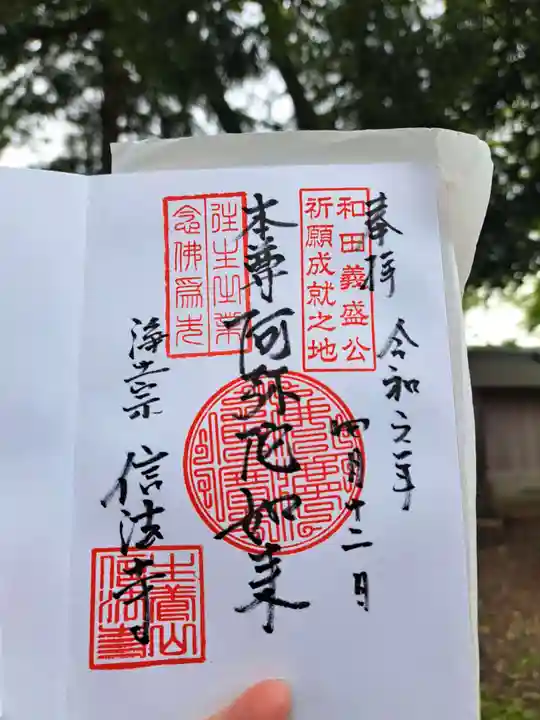 奉拝
令和六年
四月十二日
和田義盛公
祈願成就之地
本尊阿弥陀如来
往生之業
念佛爲先
浄土宗
信法寺
土養山
信法寺